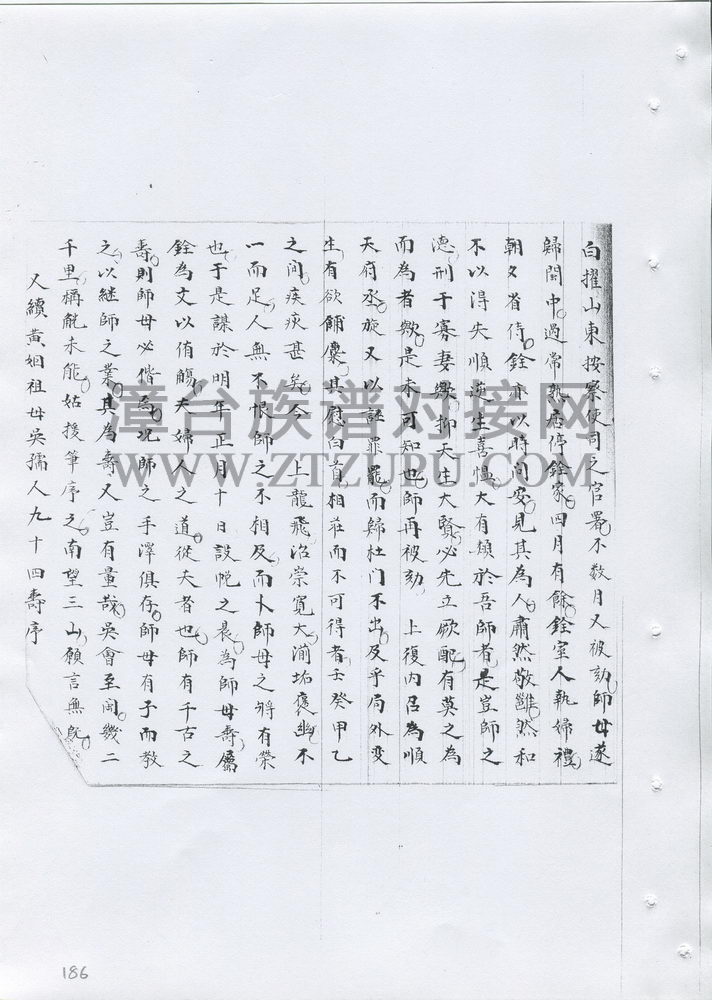 白擢山東按察使司之官署不數月又被劾師母遂
歸閩中過常熟居停銓家四月有餘銓室人執婦禮
朝夕省侍銓亦以時問安見其為人肅然敬雝然和
不以得失順逆生喜愠大有類於吾師者是豈師之
德刑于寡妻歟抑天生大賢必先立厥配有莫之為
而為者歟是未可知也師再被劾 上復內召為順
天府丞旋又以詿罪罷而歸杜门不出及乎局外变
生有欲爾
其慰白首相莊而不可得者壬癸甲乙
之间疾疢甚矣今 上龍飛治崇寬大湔垢褒幽不
一而足人無不恨師之不相及而卜師母之將有榮
也于是謀於明年正月十日設帨之晨為師母壽屬
銓為文以侑觴夫婦人之道從夫者也師有千古之
壽則師母必偕為况師之手澤俱存師母有子而教
之以繼師之業其為壽又豈有量哉吳會至闽幾二
千里稱觥未能姑援筆序之南望三山願言無既
又續黃姻祖母吳孺人九十四壽序
漳台族谱对接网
WWW.ZTZUPU.COM
186